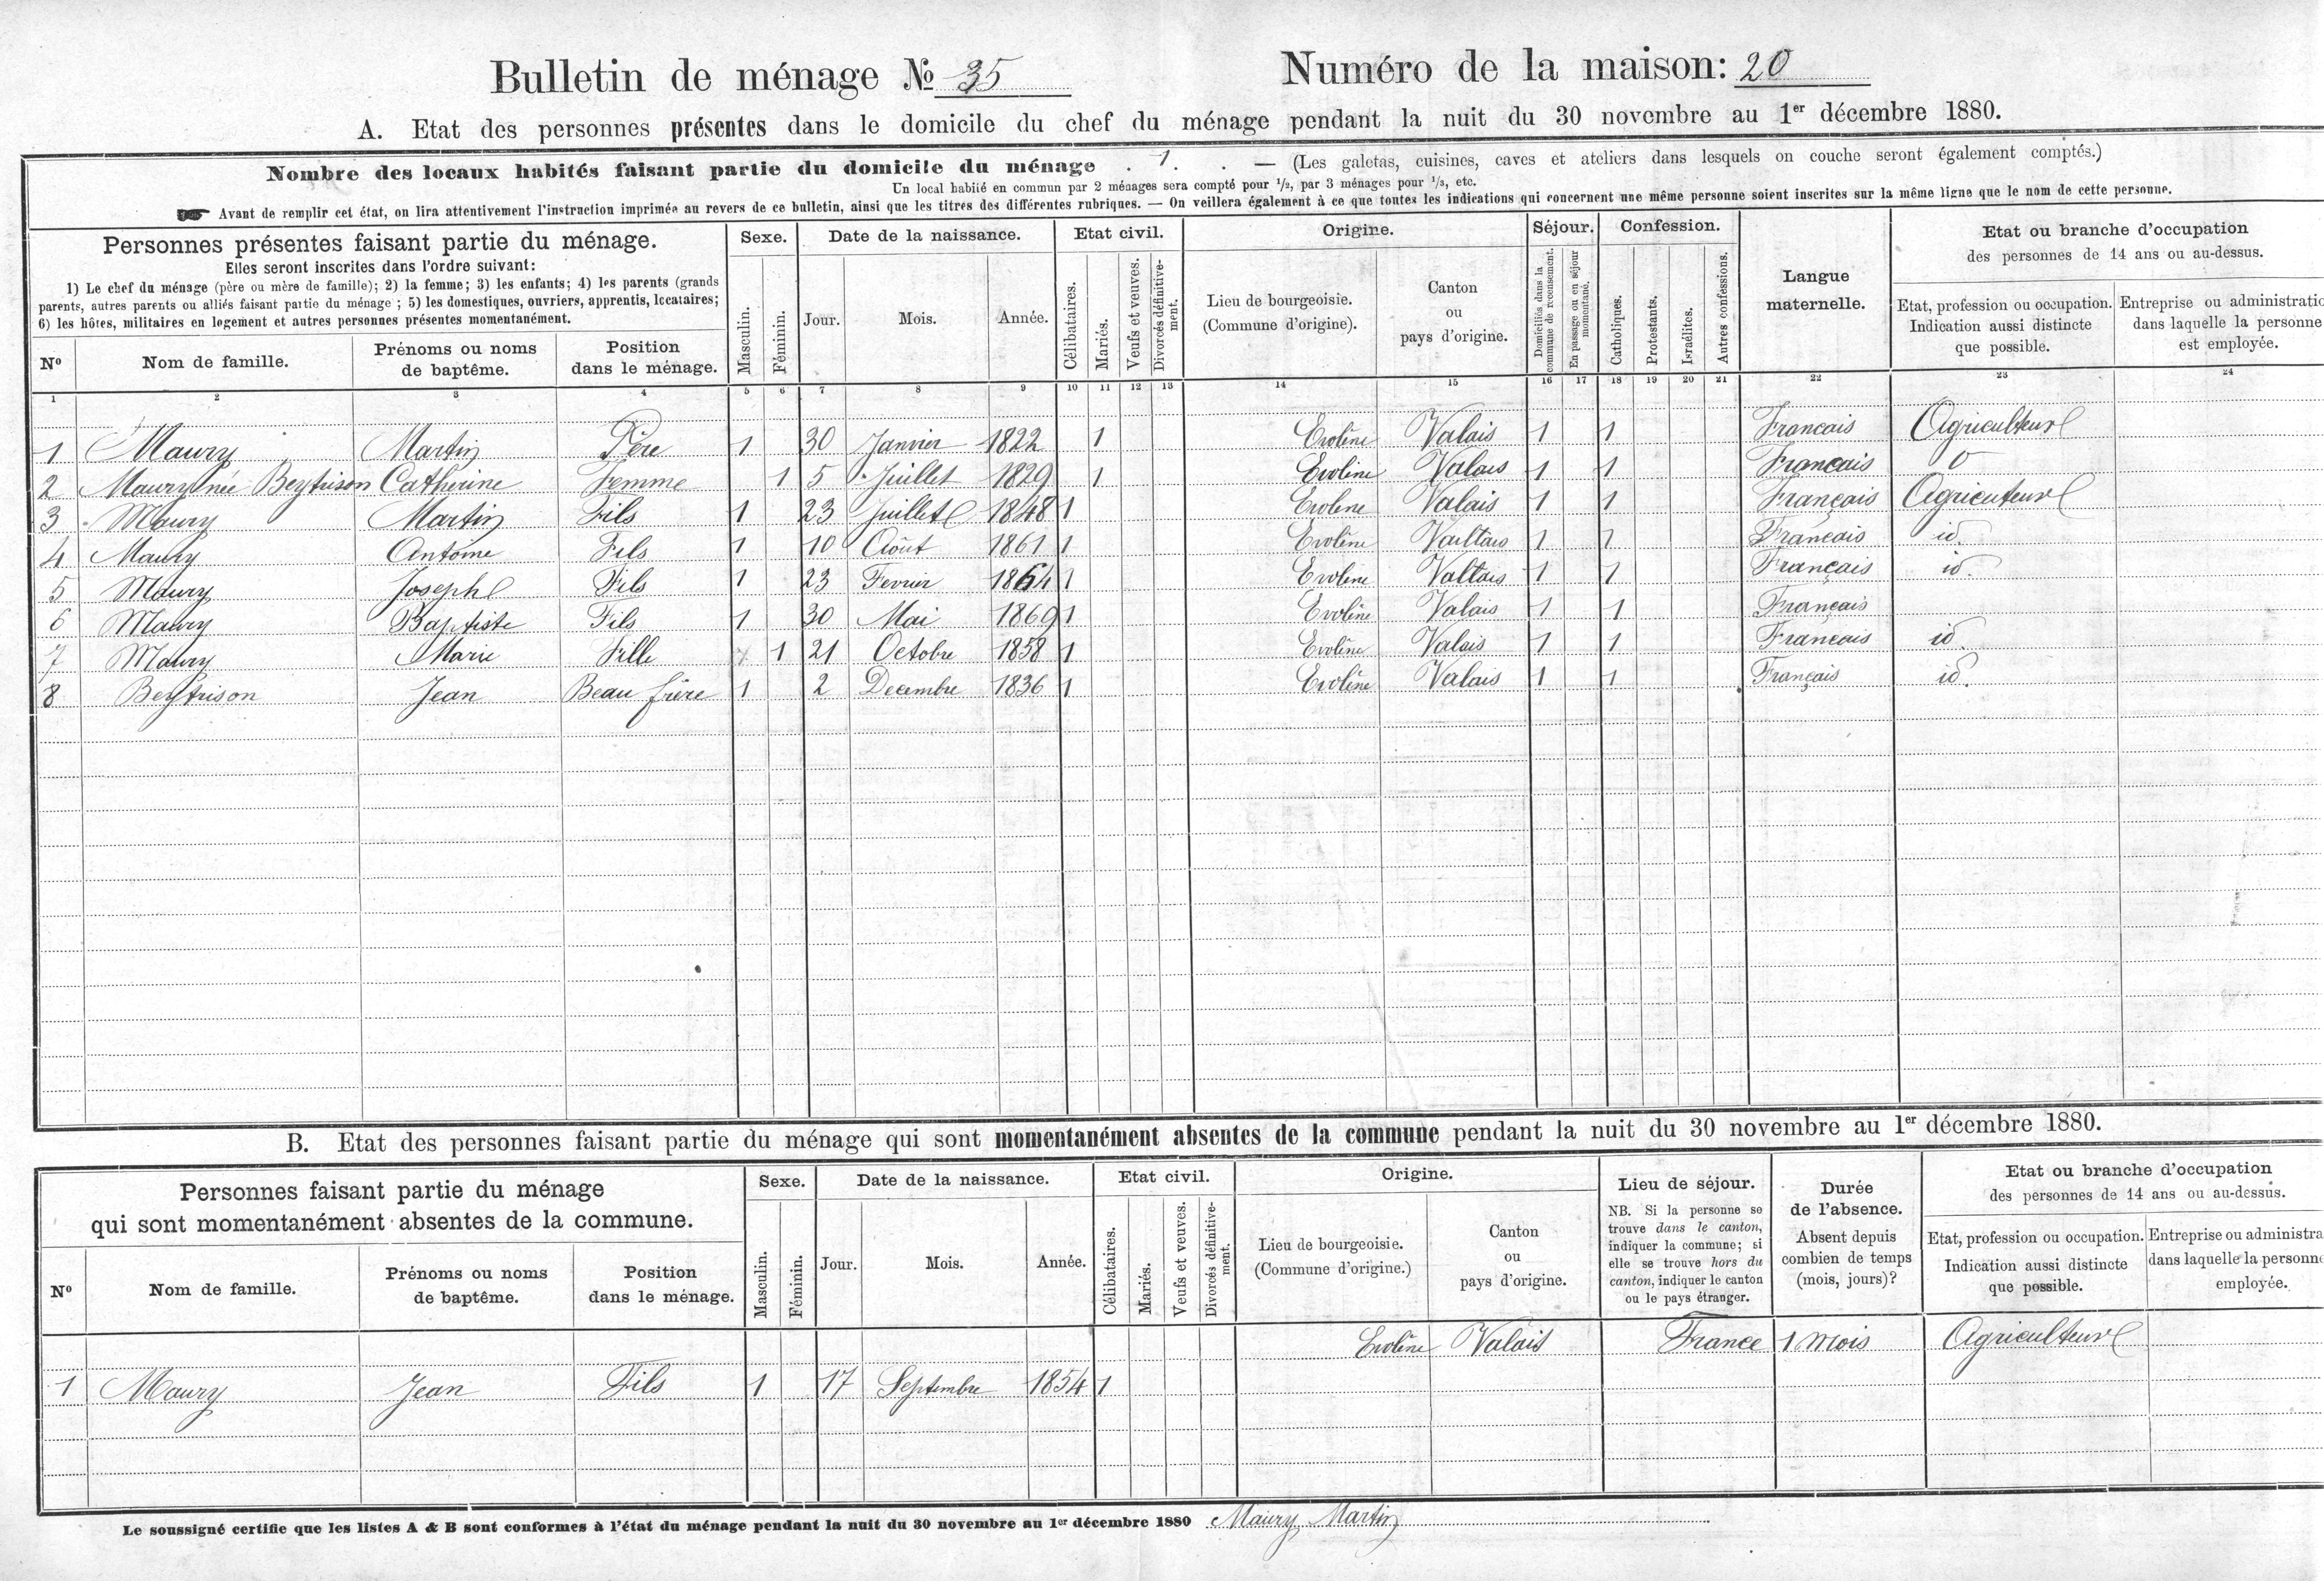 Bulletin de ménage № 35 Numéro de la maison: 20
A. Etat des personnes présentes dans le domicile du chef du ménage pendant la nuit du 30 novembre au 1er décembre 1880.
Nombre des locaux habités faisant partie du domicile du ménage . 1. . — (Les galetas, cuisines, caves et ateliers dans lesquels on couche seront également comptés.)
Un local habié en commun par 2 ménages sera compté pour 1/2, par 3 ménages pour 1/3, etc.
Avant de remplir cet état, on lira attentivement l'instruction imprimée au revers de ce bulletin, ainsi que les titres des différentes rubriques. — On veillera également à ce que toutes les indications qui concernent une même personne soient inscrites sur la même ligne que le nom de cette personne.
Personnes présentes faisant partie du ménage.
Elles seront inscrites dans l'ordre suivant:
1) Le chef du ménage (père ou mère de famille); 2) la femme; 3) les enfants; 4) les parents (grands
parents, autres parents ou alliés faisant partie du ménage ; 5) les domestiques, ouvriers, apprentis, locataires;
6) les hôtes, militaires en logement et autres personnes présentes momentanément.
Nº
Nom de famille.
Prénoms ou noms
de baptême.
Position
dans le ménage.
Sexe.
Masculin.
Féminin.
Date de la naissance.
Jour.
Mois.
Année.
Etat civil.
Célibataires.
Mariés.
Veufs et veuves.
Divorcés définitive-
ment.
Origine.
Lieu de bourgeoisie.
(Commune d'origine).
Canton
ou
pays d'origine.
Séjour.
Domiciliés dans la
commune de recensement.
En passage ou en séjour
momentané.
Confession.
Catholiques.
Protestants.
Israélites.
Autres confessions.
Langue
maternelle.
Etat ou branche d'occupation
des personnes de 14 ans ou au-dessus.
Etat, profession ou occupation.
Indication aussi distincte
que possible.
Entreprise ou administratio
dans laquelle la personne
est employée.
1 2 3 4 5 6 7 8 9 10 11 12 13 14 15 16 17 18 19 20 21 22 23 24
1 Maury Martin Père 1 30 Janvier 1822 1 Evolène Valais 1 1 Francais Agriculteur
2 Maury née Beytrison Catherine Femme 1 5 Juillet 1829 1 Evolène Valais 1 1 Francais 0
3 Maury Martin Fils 1 23 Juillet 1848 1 Evolène Valais 1 1 Français Agricuteur
4 Maury Antoine Fils 1 10 Août 1861 1 Evolène 1 1 Français id.
5 Maury Joseph Fils 1 23 Fevrier 1864 1 Evolène 1 1 Français id.
6 Maury Baptiste Fils 1 30 Mai 1869 1 Evolène Valais 1 1 Français
7 Maury Marie Fille 1 21 Octobre 1858 1 Evolène Valais 1 1 Francais id.
8 Beytrison Jean Beau frère 1 2 Decembre 1836 1 Evolène Valais 1 1 Français id.
B. Etat des personnes faisant partie du ménage qui sont momentanément absentes de la commune pendant la nuit du 30 novembre au 1er décembre 1880.
Personnes faisant partie du ménage
qui sont momentanément absentes de la commune.
Nº
Nom de famille.
Prénoms ou noms
de baptême.
Position
dans le ménage.
Sexe.
Masculin.
Féminin.
Date de la naissance.
Jour.
Mois.
Année.
Etat civil.
Célibataires.
Mariés.
Veufs et veuves.
Divorcés définitive-
ment.
Origine.
Lieu de bourgeoisie.
(Commune d'origine.)
Canton
ou
pays d'origine.
Lieu de séjour.
NB. Si la personne se
trouve dans le canton,
indiquer la commune; si
elle se trouve hors du
canton, indiquer le canton
ou le pays étranger.
Durée
de l'absence.
Absent depuis
combien de temps
(mois, jours)?
Etat ou branche d'occupation
des personnes de 14 ans ou au-dessus.
Etat, profession ou occupation.
Indication aussi distincte
que possible.
Entreprise ou administra
dans laquelle la personne
employée.
1 Maury Jean Fils 1 17 Septembre 1854 1 Evolène Valais France 1 mois Agriculteur
Le soussigné certifie que les listes A & B sont conformes à l'état du ménage pendant la nuit du 30 novembre au 1er décembre 1880 Maury Martin